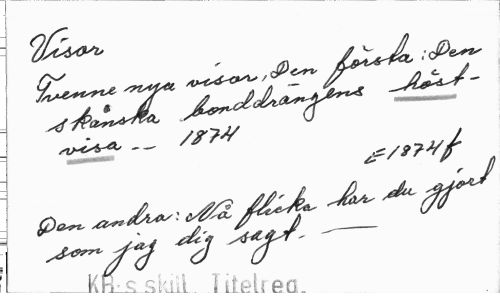 Visor
Tvenne nya visor, Den första: Den
skånska bonddrängens höst-
visa -- 1874
E1874f
Den andra: Nå flicka har du gjort
som jag dig sagt. —
KB:s skill. Titelreg.